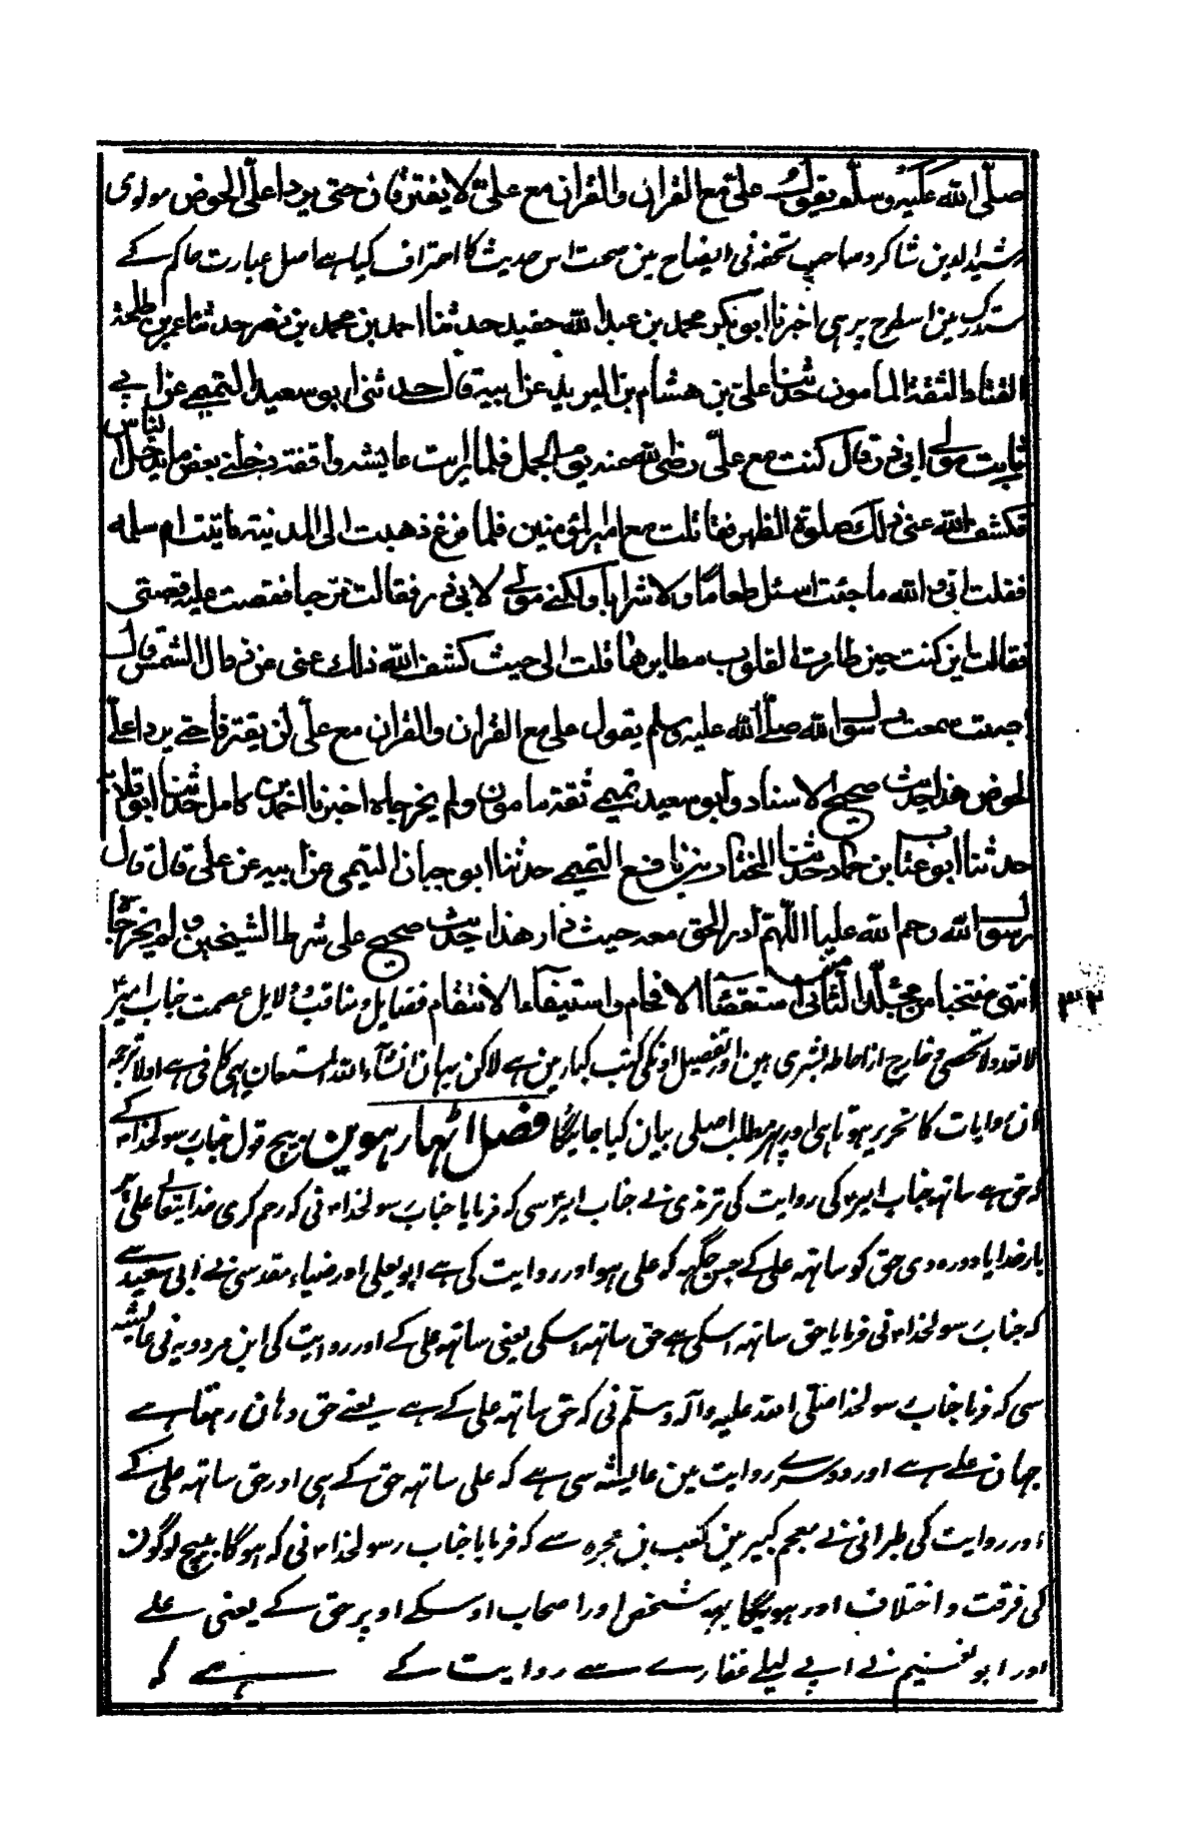 صلّی اللہ علیہ وسلّم یقول علیّ مع القرآن والقرآن مع علیّ لا یفترقان حتی یردا علیّ الحوض مولوی
رشید الدین شاکرد صاحب تحفہ نی ایضاح مین صحت اس حدیث کا اعتراف کیا ہے اصل عبارت حاکم کے
مستدرک مین اسطرح پر ہی اخبرنا ابو بکر محمد بن عبد اللہ حفید حدثنا احمد بن محمد بن نصر حدثنا عمرو بن طلحۃ
القناد الثقۃ المامون حدثنا علیّ بن ھشام بن البرید عن ابیہ قال حدثنی ابو سعید التیمے عن ابے
ثابت مولے ابی ذر قال کنت مع علیّ رضی اللہ عنہ یوم الجمل فلما رایت عایشہ واقفۃ دخلنے بعض ما یدخل الناس
فکشف اللہ عنی ذلک صلوۃ الظہر فقاتلت مع امیر المؤمنین فلما فرغ ذھبت الی المدینۃ فاتیت ام سلمہ
فقلت انی واللہ ما جئت اسئل طعامًا ولا شرابا ولکنے مولے لابی ذر فقالت مرحبا فقصصت علیہ قصتی
فقالت این کنت حین طارت القلوب مطایرھا قلت الی حیث کشف اللہ ذلک عنی عن زوال الشمس قال
احسنت سمعت رسول اللہ صلّے اللہ علیہ وسلم یقول علی مع القران والقران مع علیّ لن یفترقا حتے یردا علیّ
الحوض ھذا حدیث صحیح الاسناد وابو سعید تیمے ثقۃ مامون ولم یخرجاہ اخبرنا احمد بن کامل حدثنا ابو قلابۃ
حدثنا ابو عتاب بن حماد حدثنا المختار بن نافع التیمے حدثنا ابو حبان التیمی عن ابیہ عن علی قال قال
رسول اللہ رحم اللہ علیا اللّٰھمّ ادر الحق معہ حیث دار ھذا حدیث صحیح علی شرط الشیخین ولم یخرجاہ
انتہی منتخبا من مجلد الثانی من استقصاء الافحام واستیفاء الانتقام فضایل و مناقب و دلایل عصمت جناب امیرؑ
لا تعد ولا تحصی و خارج از احاطہ بشری ہین اور تفصیل اونکی کتب کبار مین ہے لاکن یہان انشاء اللہ المستعان یہی کافی ہے اولا ترجمہ
ان روایات کا تحریر ہوتا ہی اور پھر مطلب اصلی بیان کیا جائیگا فصل اٹھارہوین بیچ قول جناب رسولخداؐ کے
کہ حق ہے ساتھ جناب امیرؑ کی روایت کی ترمذی نے جناب امیرؑ سی کہ فرمایا جناب رسولخداؐ نی کہ رحم کری خدایتعالے علیؑ پر
بار خدایا دورہ دی حق کو ساتھ علی کے جس جگہہ کہ علی ہو اور روایت کی ہے ابو یعلی اور ضیاء مقدسی نے ابی سعید سے
کہ جناب رسولخداؐ نی فرمایا حق ساتھ اسکی ہے حق ساتھ اسکی یعنی ساتھ علی کے اور روایت کی ابن مردویہ نی عایشہ
سی کہ فرمایا جناب رسولخدا صلّی اللہ علیہ وآلہ وسلّم نی کہ حق ساتھ علی کے ہے یعنے حق وہان رہتا ہے
جہان علے ہے اور دوسرے روایت مین عایشہ سی ہے کہ علی ساتھ حق کے ہی اور حق ساتھ علی کے
اور روایت کی طبرانی نے معجم کبیر مین کعب بن عجرہ سے کہ فرمایا جناب رسولخداؐ نی کہ ہوگا بیچ لوگون
کی فرقت و اختلاف اور ہوئیگا یہہ شخص اور اصحاب اوسکے اوپر حق کے یعنی علے
اور ابو نعیم نے ابے لیلے غفارے سے روایت کے ہے کہ
۳۲